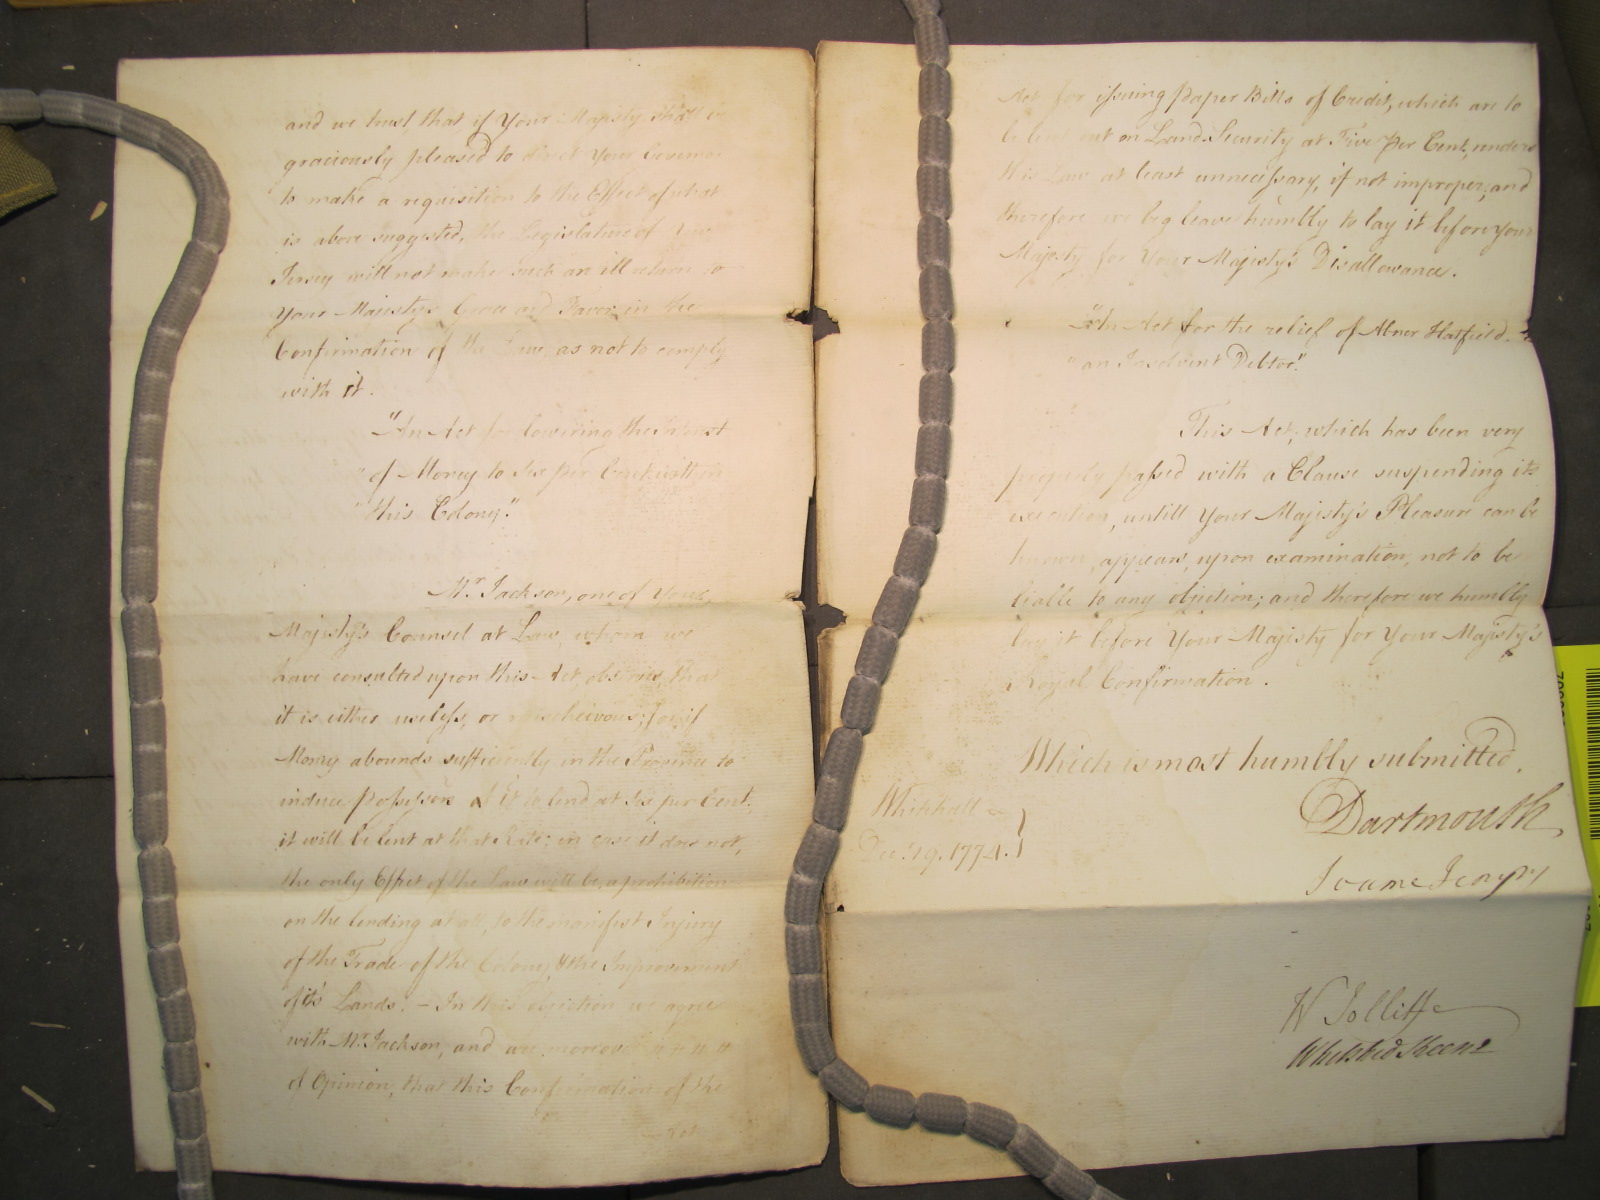 and we trust that if Your Majesty shall be
graciously pleased to direct Your Governor
to make a requisition to the Effect of what
is above suggested, the Legislature of New
Jersey will not make such an ill return to
Your Majesty's Grace and Favor in the
Confirmation of the Law, as not to comply
with it.
"An Act for lowering the Interest
" of Money to Six per Cent within
" this Colony."
Mr. Jackson, one of Your
Majesty's Counsel at Law, whom we
have consulted upon this Act, observes, that
it is either useless, or mischeivous; for if
Money abounds sufficiently in the Province to
induce Possessors of it to lend at Six per Cent.
it will be lent at that Rate; in case it does not,
the only Effect of the Law will be, a prohibition
on the lending at all, to the manifest Injury
of the Trade of the Colony, & the Improvement
of it's Lands. - In this objection we agree
with Mr. Jackson, and we moreover
of Opinion, that this Confirmation of the
Act
Act for issuing Paper Bills of Credit, which are to
be lent out on Land Security at Five per Cent, renders
this Law at least unnecessary, if not improper; and
therefore we beg leave humbly to lay it before Your
Majesty for Your Majesty's Disallowance.
"An Act for the relief of Abner Hatfield.
" an Insolvent Debtor."
This Act, which has been very
properly passed with a Clause suspending its
execution, untill Your Majesty's Pleasure can be
known, appears, upon examination, not to be
liable to any objection; and therefore we humbly
lay it before Your Majesty for Your Majesty's
Royal Confirmation.
Which is most humbly submitted.
Whitehall
Decr. 19. 1774.
Dartmouth
Soame Jenyns
W Jolliffe
Whitshed Keene